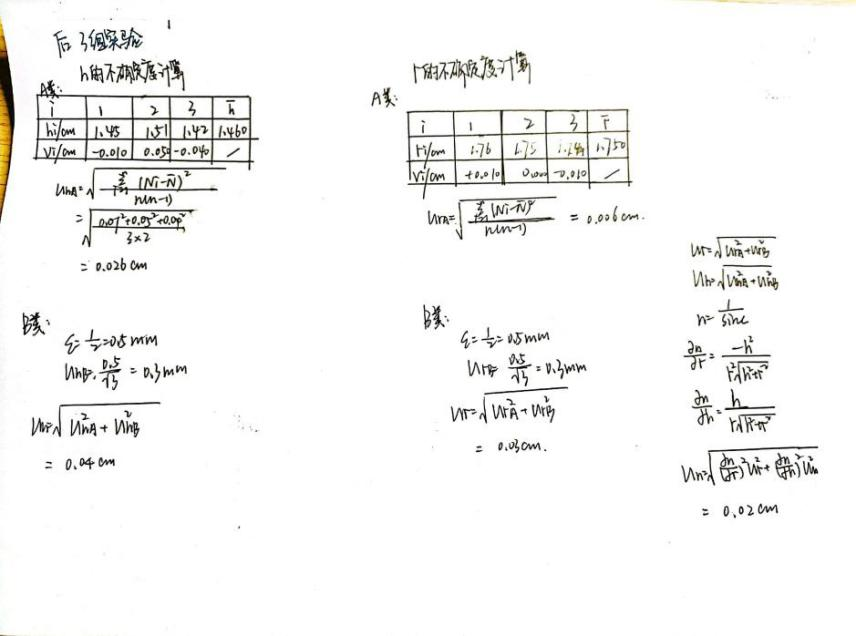 后3组实验
h的不确定度计算
A类:
i 1 2 3 h̄
hi/cm 1.45 1.51 1.42 1.460
Vi/cm -0.010 0.050 -0.040 /
UhA=√(Σ(Ni-N̄)²/n(n-1))
=√((0.01²+0.05²+0.04²)/(3×2))
=0.026cm
B类:
ξ=1/2=0.5mm
UhB=0.5/√3=0.3mm
Uh=√(UhA²+UhB²)
=0.04cm
r的不确定度计算
A类:
i 1 2 3 r̄
ri/cm 1.76 1.75 1.74 1.750
Vi/cm +0.010 0.000 -0.010 /
UrA=√(Σ(Ni-N̄)²/n(n-1)) =0.006cm.
B类:
ξ=1/2=0.5mm
UrB=0.5/√3=0.3mm
Ur=√(UrA²+UrB²)
=0.03cm.
Ur=√(UrA²+UrB²)
Uh=√(UhA²+UhB²)
n=1/sinc
∂n/∂r=-h²/(r²√(h²+r²))
∂n/∂h=h/(r√(h²+r²))
Un=√((∂n/∂r)²Ur²+(∂n/∂h)²Uh²)
=0.02cm